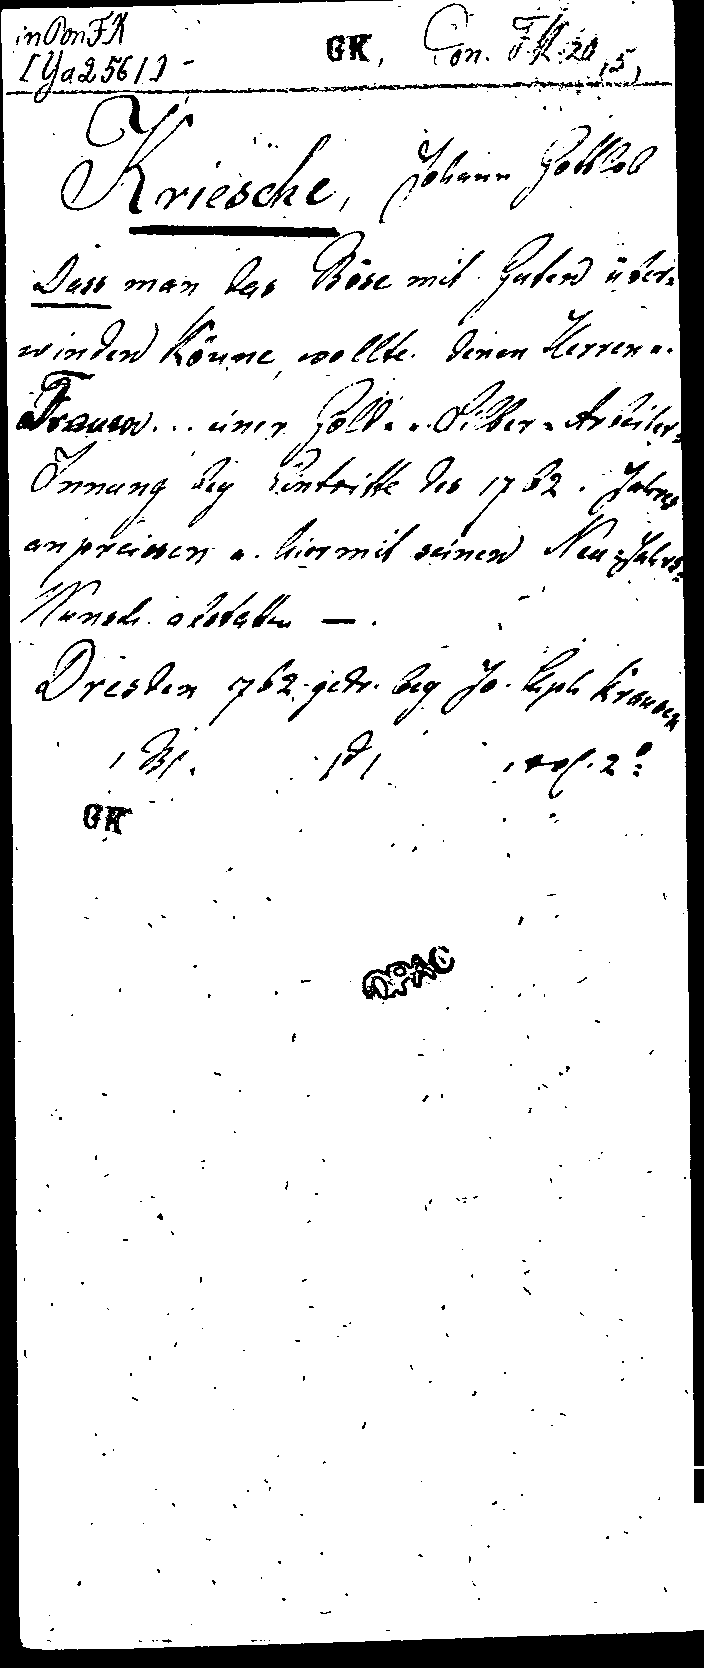 in Pon FK
[Ya 2561]
GK, Pon. FK 20,5,
Kriesche, Johann Gottlob
Dass man das Böse mit Guten über-
winden Könne, wollte denen Herren u.
Frauen... einer Gold- u. Silber-Arbeiter-
Innung bey Eintritte des 1762. Jahres
anpreissen u. hiermit seinen Neu-Jahrs-
Wunsch abstatten —.
Dresden 762. gedr. bey Jo. Krausen
1 Bl. 2°
GK
OPAC